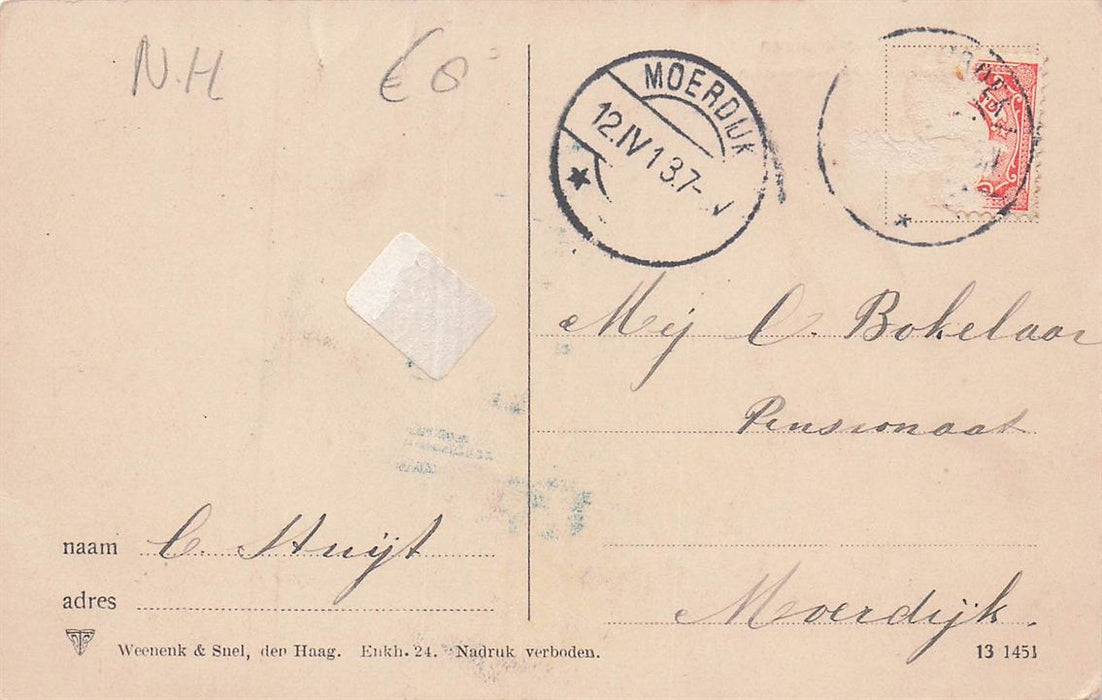 N.H € 8
MOERDIJK
12.IV 13.7-
Mej C. Bokelaar
Pensionaat
naam C. Huijt
Moerdijk.
adres
Weenenk & Snel, den Haag. Enkh. 24. Nadruk verboden. 13 1451